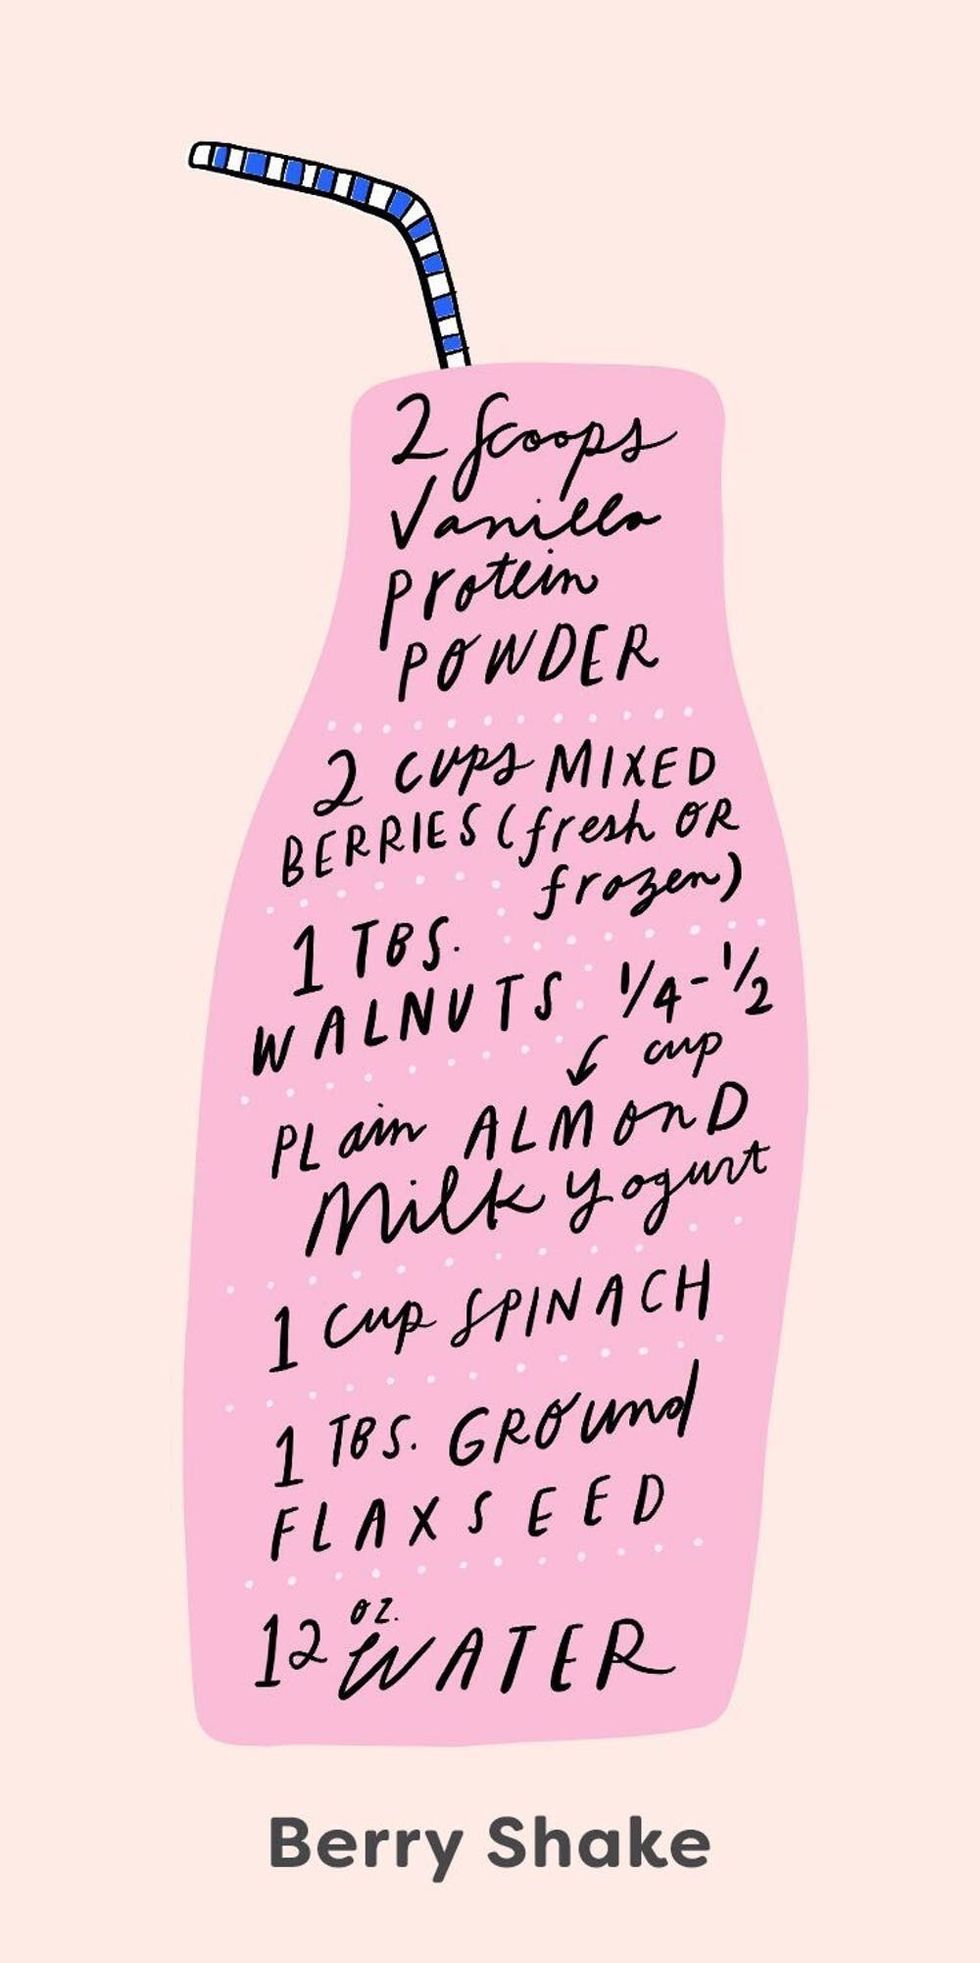 2 Scoops
Vanilla
protein
POWDER
2 cups MIXED
BERRIES (fresh OR
frozen)
1 TBS.
WALNUTS
1/4-1/2
cup
PLain ALMOnD
Milk Yogurt
1 Cup SPINACH
1 TBS. GROund
FLAXSEED
12 oz. WATER
Berry Shake